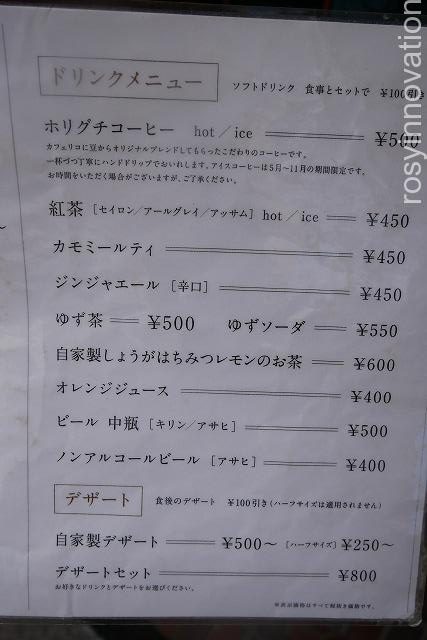 ドリンクメニュー
ソフトドリンク 食事とセットで ¥100引き
ホリグチコーヒー hot／ice ¥500
カフェリコに豆からオリジナルブレンドしてもらったこだわりのコーヒーです。
一杯づつ丁寧にハンドドリップでおいれします。アイスコーヒーは5月〜11月の期間限定です。
お時間をいただく場合がございますが、ご了承ください。
紅茶［セイロン／アールグレイ／アッサム］hot／ice ¥450
カモミールティ ¥450
ジンジャエール［辛口］ ¥450
ゆず茶 ¥500 ゆずソーダ ¥550
自家製しょうがはちみつレモンのお茶 ¥600
オレンジジュース ¥400
ビール 中瓶［キリン／アサヒ］ ¥500
ノンアルコールビール［アサヒ］ ¥400
デザート 食後のデザート ¥100引き（ハーフサイズは適用されません）
自家製デザート ¥500〜［ハーフサイズ］¥250〜
デザートセット ¥800
お好きなドリンクとデザートをお選びください。
※表示価格はすべて税抜き価格です。
rosyinnovation